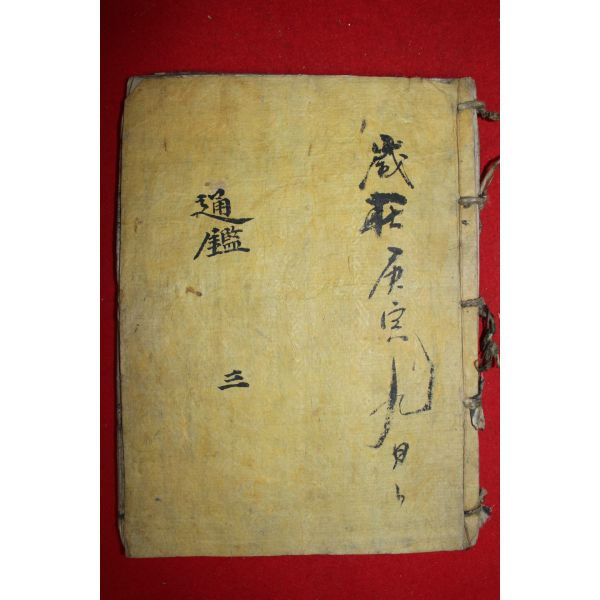 歲在庚寅九月日
通鑑
三